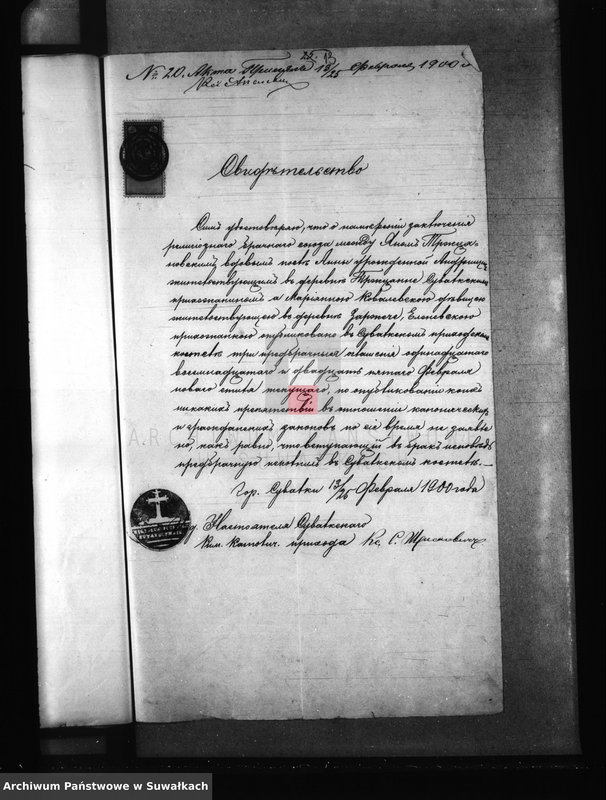 № 20. Акта 13/25 Февраля 1900 г.
Свидѣтельство
Симъ удостовѣряю, что о намѣреніи заключенія
религіознаго брачнаго союза между Яномъ
вдовымъ послѣ Анны урожденной
жительствующимъ въ деревнѣ Сувалкскимъ
прихожаниномъ и Маріанною Ковалевскою дѣвицею
жительствующею въ деревнѣ
прихожанкою опубликовано въ Сувалкскомъ приходскомъ
костелѣ три предбрачныя оглашенія одинадцатаго
восемнадцатаго и двадцать пятаго Февраля
новаго стиля текущаго, по опубликованіи коихъ
никакихъ препятствій въ отношеніи каноническихъ
и гражданскихъ законовъ по сіе время не заявле
но, какъ равно, что вступающій въ бракъ исповѣдь
предбрачную исполнилъ въ Сувалкскомъ костелѣ.
Гор. Сувалки 13/25 Февраля 1900 года
Настоятеля Сувалкскаго
Рим. Катол. прихода Кс. С.
Archiwum Państwowe w Suwałkach